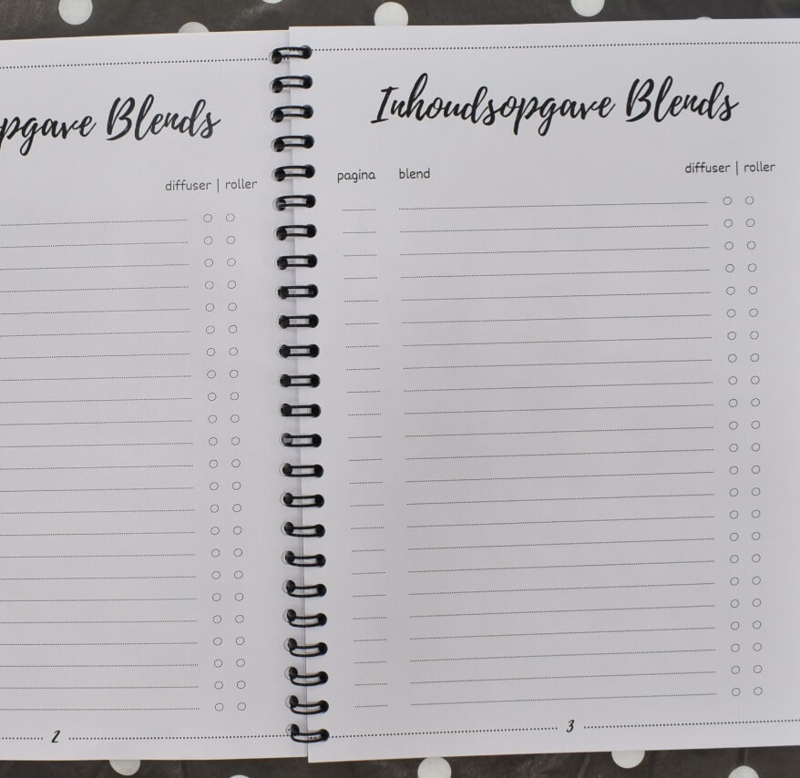 Blends
diffuser | roller
2
Inhoudsopgave Blends
pagina blend diffuser | roller
3